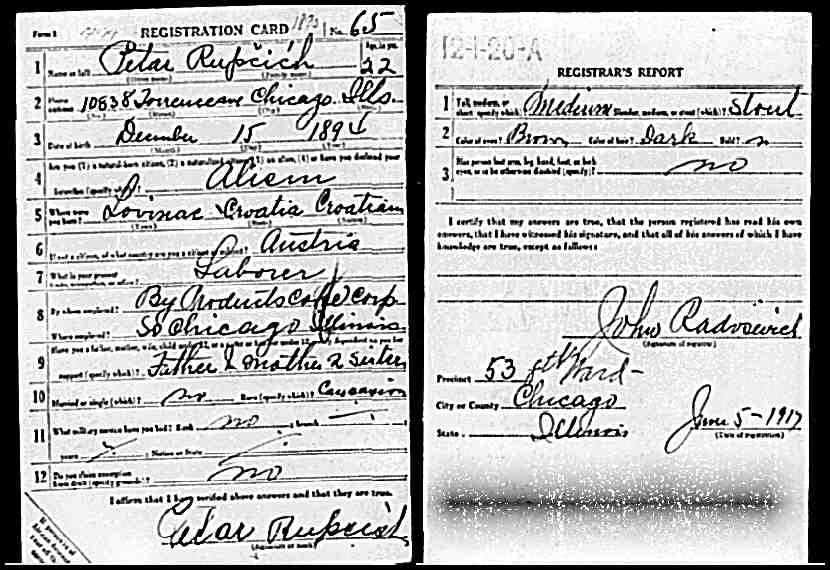 Form 1 REGISTRATION CARD No. 65
1 Name in full Petar Rupčić Age, in yrs. 22
(Given name) (Family name)
2 Home address 10838 Torrence av Chicago Ills.
(No.) (Street) (City) (State)
3 Date of birth December 15 1894
(Month) (Day) (Year)
4 Are you (1) a natural-born citizen, (2) a naturalized citizen, (3) an alien, (4) or have you declared your
intention (specify which)? Alien
5 Where were you born? Lovinac Croatia Croatian
(Town) (State) (Nation)
6 If not a citizen, of what country are you a citizen or subject? Austria
7 What is your present trade, occupation, or office? Laborer
8 By whom employed? By Products Coke Corp
Where employed? So Chicago Illinois
9 Have you a father, mother, wife, child under 12, or a sister or brother under 12, solely dependent on you for
support (specify which)? Father & Mother 2 Sister
10 Married or single (which)? no Race (specify which)? Caucasion
11 What military service have you had? Rank no ; branch
years ; Nation or State
12 Do you claim exemption from draft (specify grounds)? no
I affirm that I have verified above answers and that they are true.
Petar Rupcich
(Signature or mark)
12-1-20-A
REGISTRAR'S REPORT
1 Tall, medium, or short (specify which)? Medium Slender, medium, or stout (which)? Stout
2 Color of eyes? Brown Color of hair? Dark Bald? n
3 Has person lost arm, leg, hand, foot, or both
eyes, or is he otherwise disabled (specify)? no
I certify that my answers are true, that the person registered has read his own
answers, that I have witnessed his signature, and that all of his answers of which I have
knowledge are true, except as follows:
John Radosevich
(Signature of registrar)
Precinct 53 8th Ward
City or County Chicago
State Illinois June 5-1917
(Date of registration)